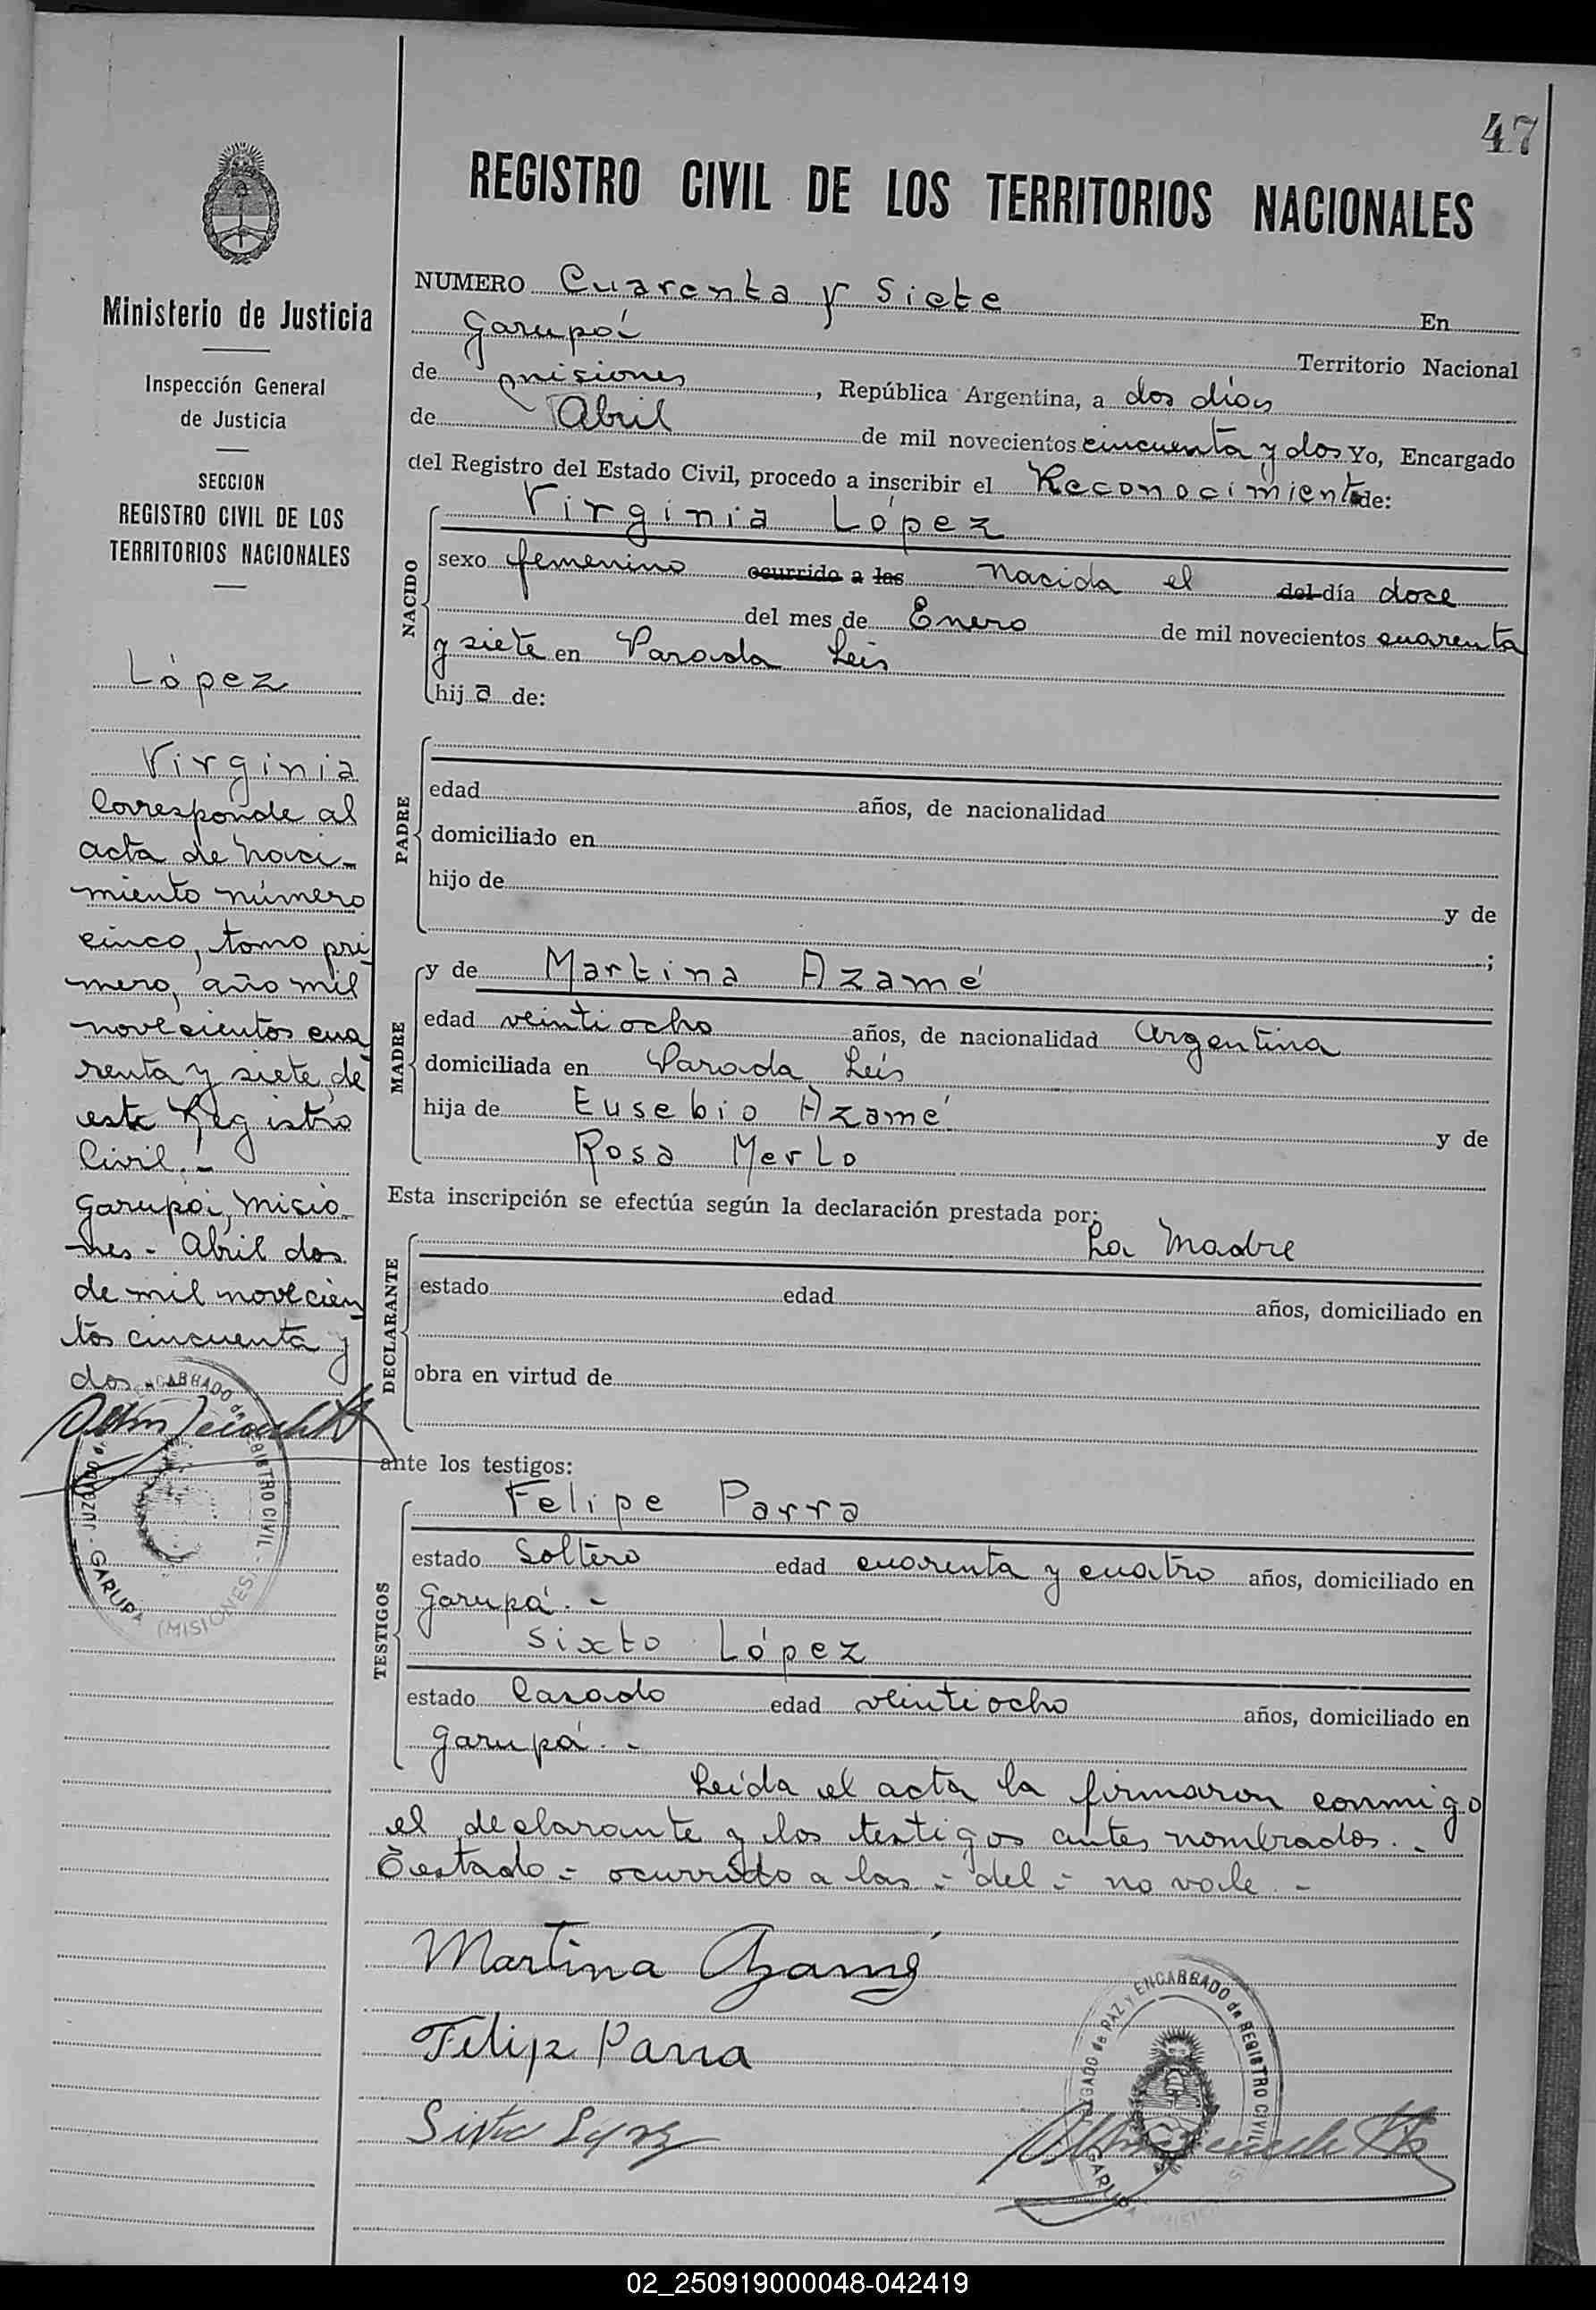 47
REGISTRO CIVIL DE LOS TERRITORIOS NACIONALES
Ministerio de Justicia
Inspección General
de Justicia
SECCION
REGISTRO CIVIL DE LOS
TERRITORIOS NACIONALES
López
Virginia
Corresponde al
acta de naci-
miento número
cinco, tomo pri
mero, año mil
novecientos cua
renta y siete, de
este Registro
Civil.-
Garupá, Misio-
nes - Abril dos
de mil novecien
tos cincuenta y
dos -
JUZGADO de ENCARGADO de REGISTRO CIVIL - GARUPA (MISIONES)
NUMERO Cuarenta y siete En
Garupá Territorio Nacional
de Misiones, República Argentina, a dos días
de Abril de mil novecientos cincuenta y dos Yo, Encargado
del Registro del Estado Civil, procedo a inscribir el Reconocimiento de:
NACIDO
Virginia López
sexo femenino ocurrido a las nacida el del día doce
del mes de Enero de mil novecientos cuarenta
y siete en Parada Leis
hij a de:
PADRE
edad años, de nacionalidad
domiciliado en
hijo de y de
;
MADRE
y de Martina Azamé
edad veintiocho años, de nacionalidad Argentina
domiciliada en Parada Leis
hija de Eusebio Azamé y de
Rosa Merlo
Esta inscripción se efectúa según la declaración prestada por:
DECLARANTE
La Madre
estado edad años, domiciliado en
obra en virtud de
ante los testigos:
TESTIGOS
Felipe Parra
estado Soltero edad cuarenta y cuatro años, domiciliado en
Garupá.-
Sixto López
estado Casado edad veintiocho años, domiciliado en
Garupá.-
Leída el acta la firmaron conmigo
el declarante y los testigos antes nombrados.-
Testado - ocurrido a las - del - no vale.-
Martina Azamé
Felipe Parra
Sixto López
JUZGADO de PAZ Y ENCARGADO de REGISTRO CIVIL GARUPA
02_250919000048-042419